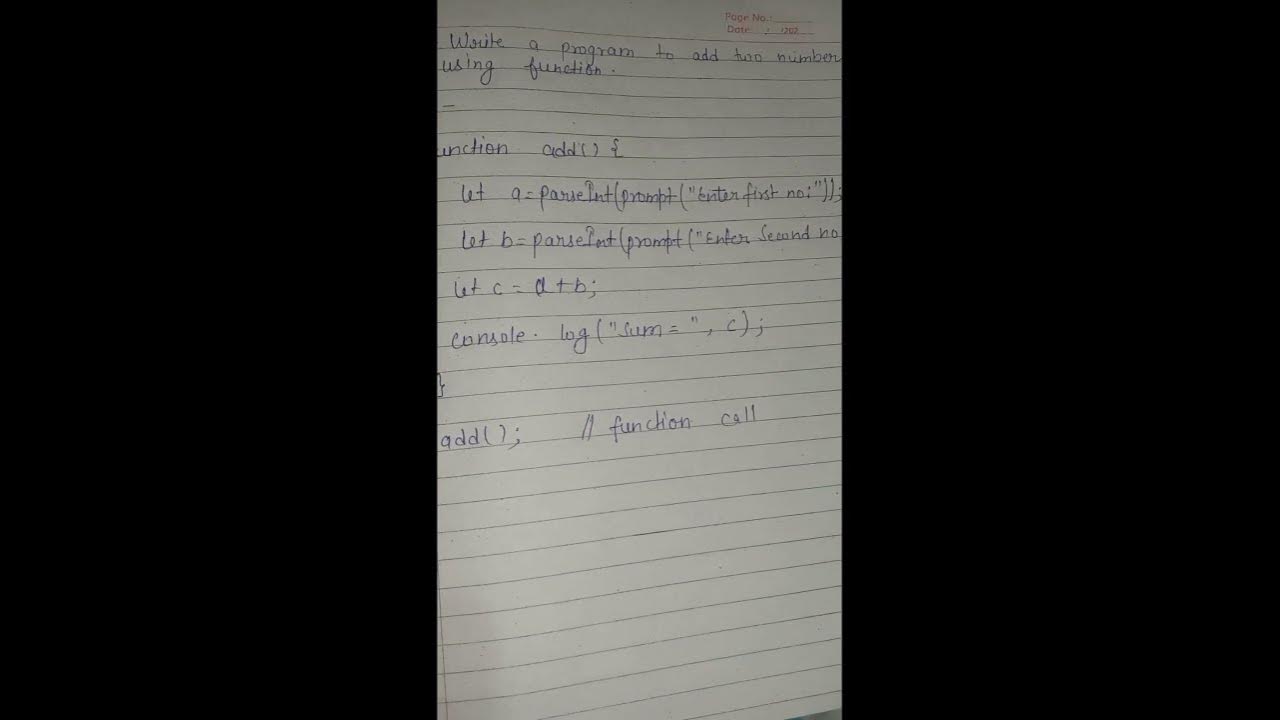 Page No.:
Date : 202
Write a program to add two number
using function.
unction add() {
let a=parseInt(prompt("Enter first no:"));
let b=parseInt(prompt("Enter Second no
let c = a+b;
console. log("Sum = ", c);
}
add(); // function call